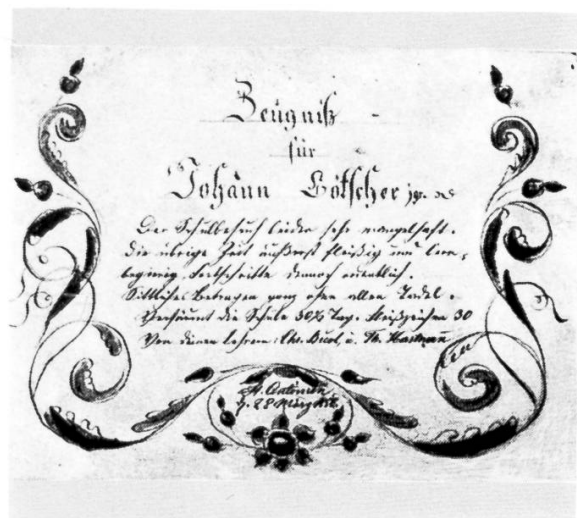 Zeugniß
für
Johann Lötscher jgr.
Der Schulbesuch leider sehr mangelhaft.
Die übrige Zeit äußerst fleißig und lern-
begierig. Fortschritte dennoch ordentlich.
Sittliches Betragen ganz ohne allen Tadel.
Versäumt die Schule 30½ Tag. Fleißzeichen 30
Von deinen Lehrern: Chr. Buol, u. Hartmann
St. Antönien
28 März